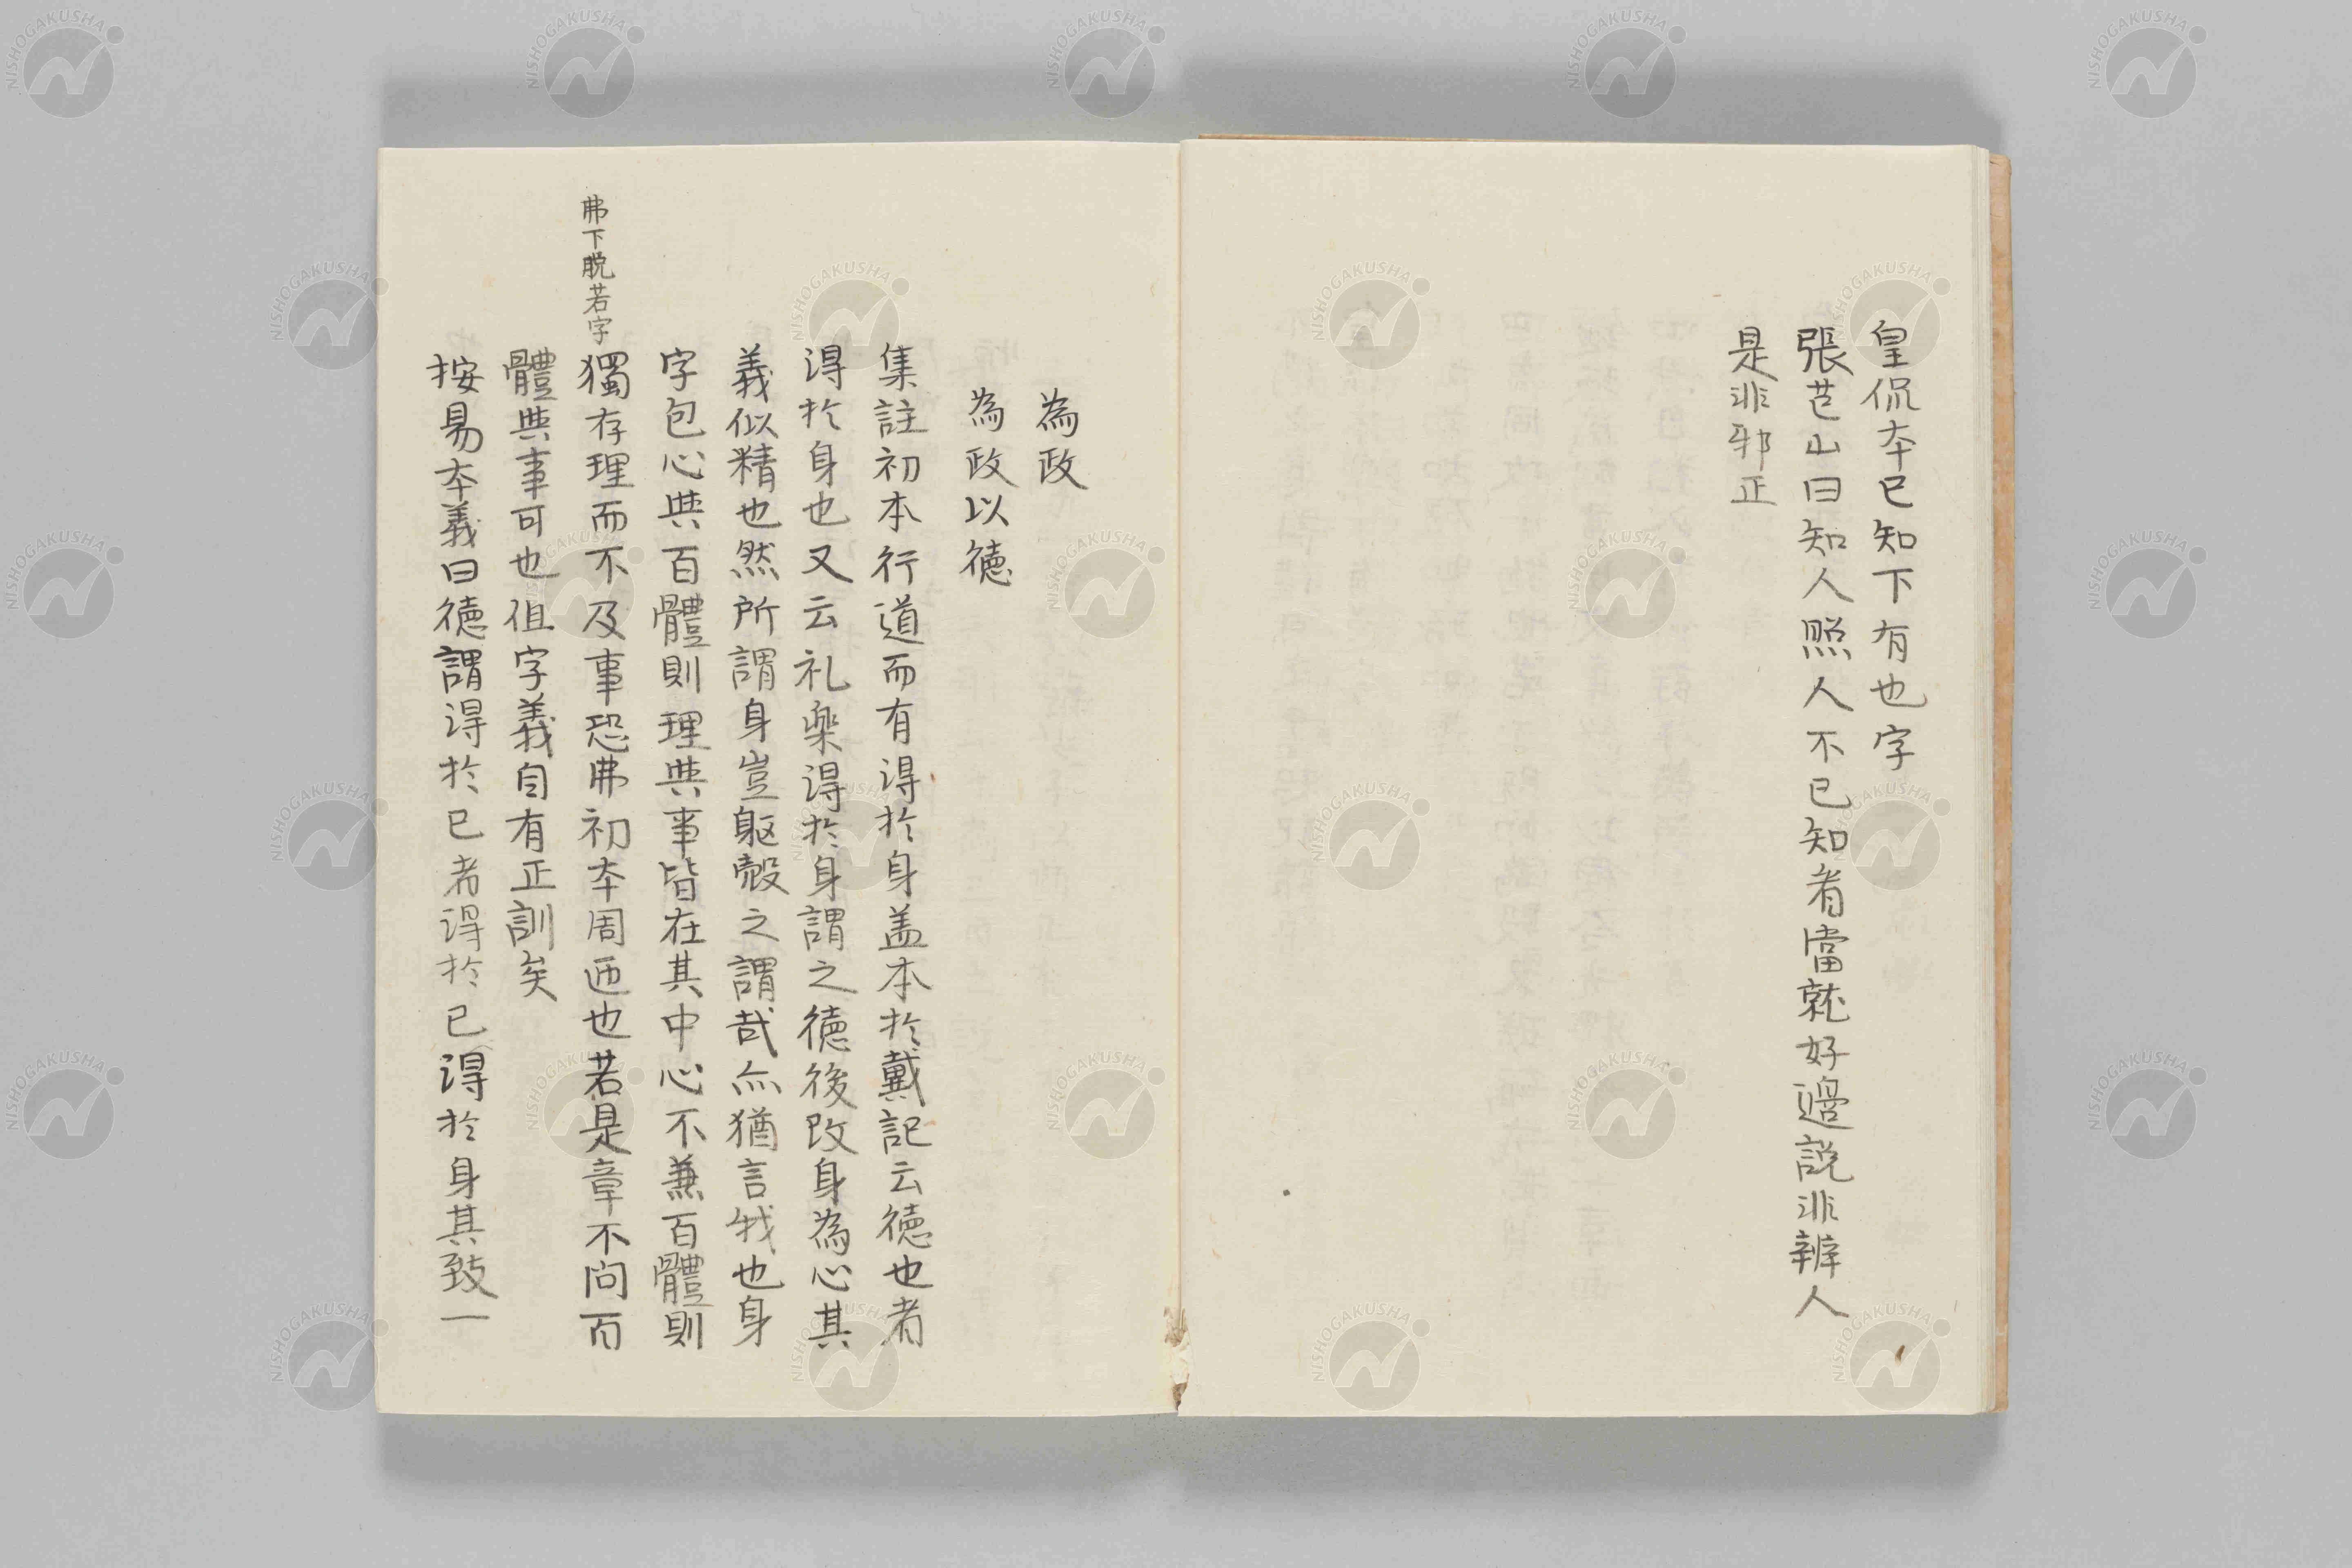 皇侃本已知下有也字
張芭山曰知人照人不已知者當就好邊説非辨人
是非邪正
為政
為政以徳
集註初本行道而有得於身盖本於戴記云徳也者
得於身也又云礼樂得於身謂之徳後改身為心其
義似精也然所謂身豈軀殻之謂哉尒猶言我也身
字包心與百體則理與事皆在其中心不兼百體則
獨存理而不及事恐弗初本周匝也若是章不問百
弗下脱若字
體與事可也但字義自有正訓矣
按易本義曰徳謂得於己者得於己得於身其致一
NISHOGAKUSHA